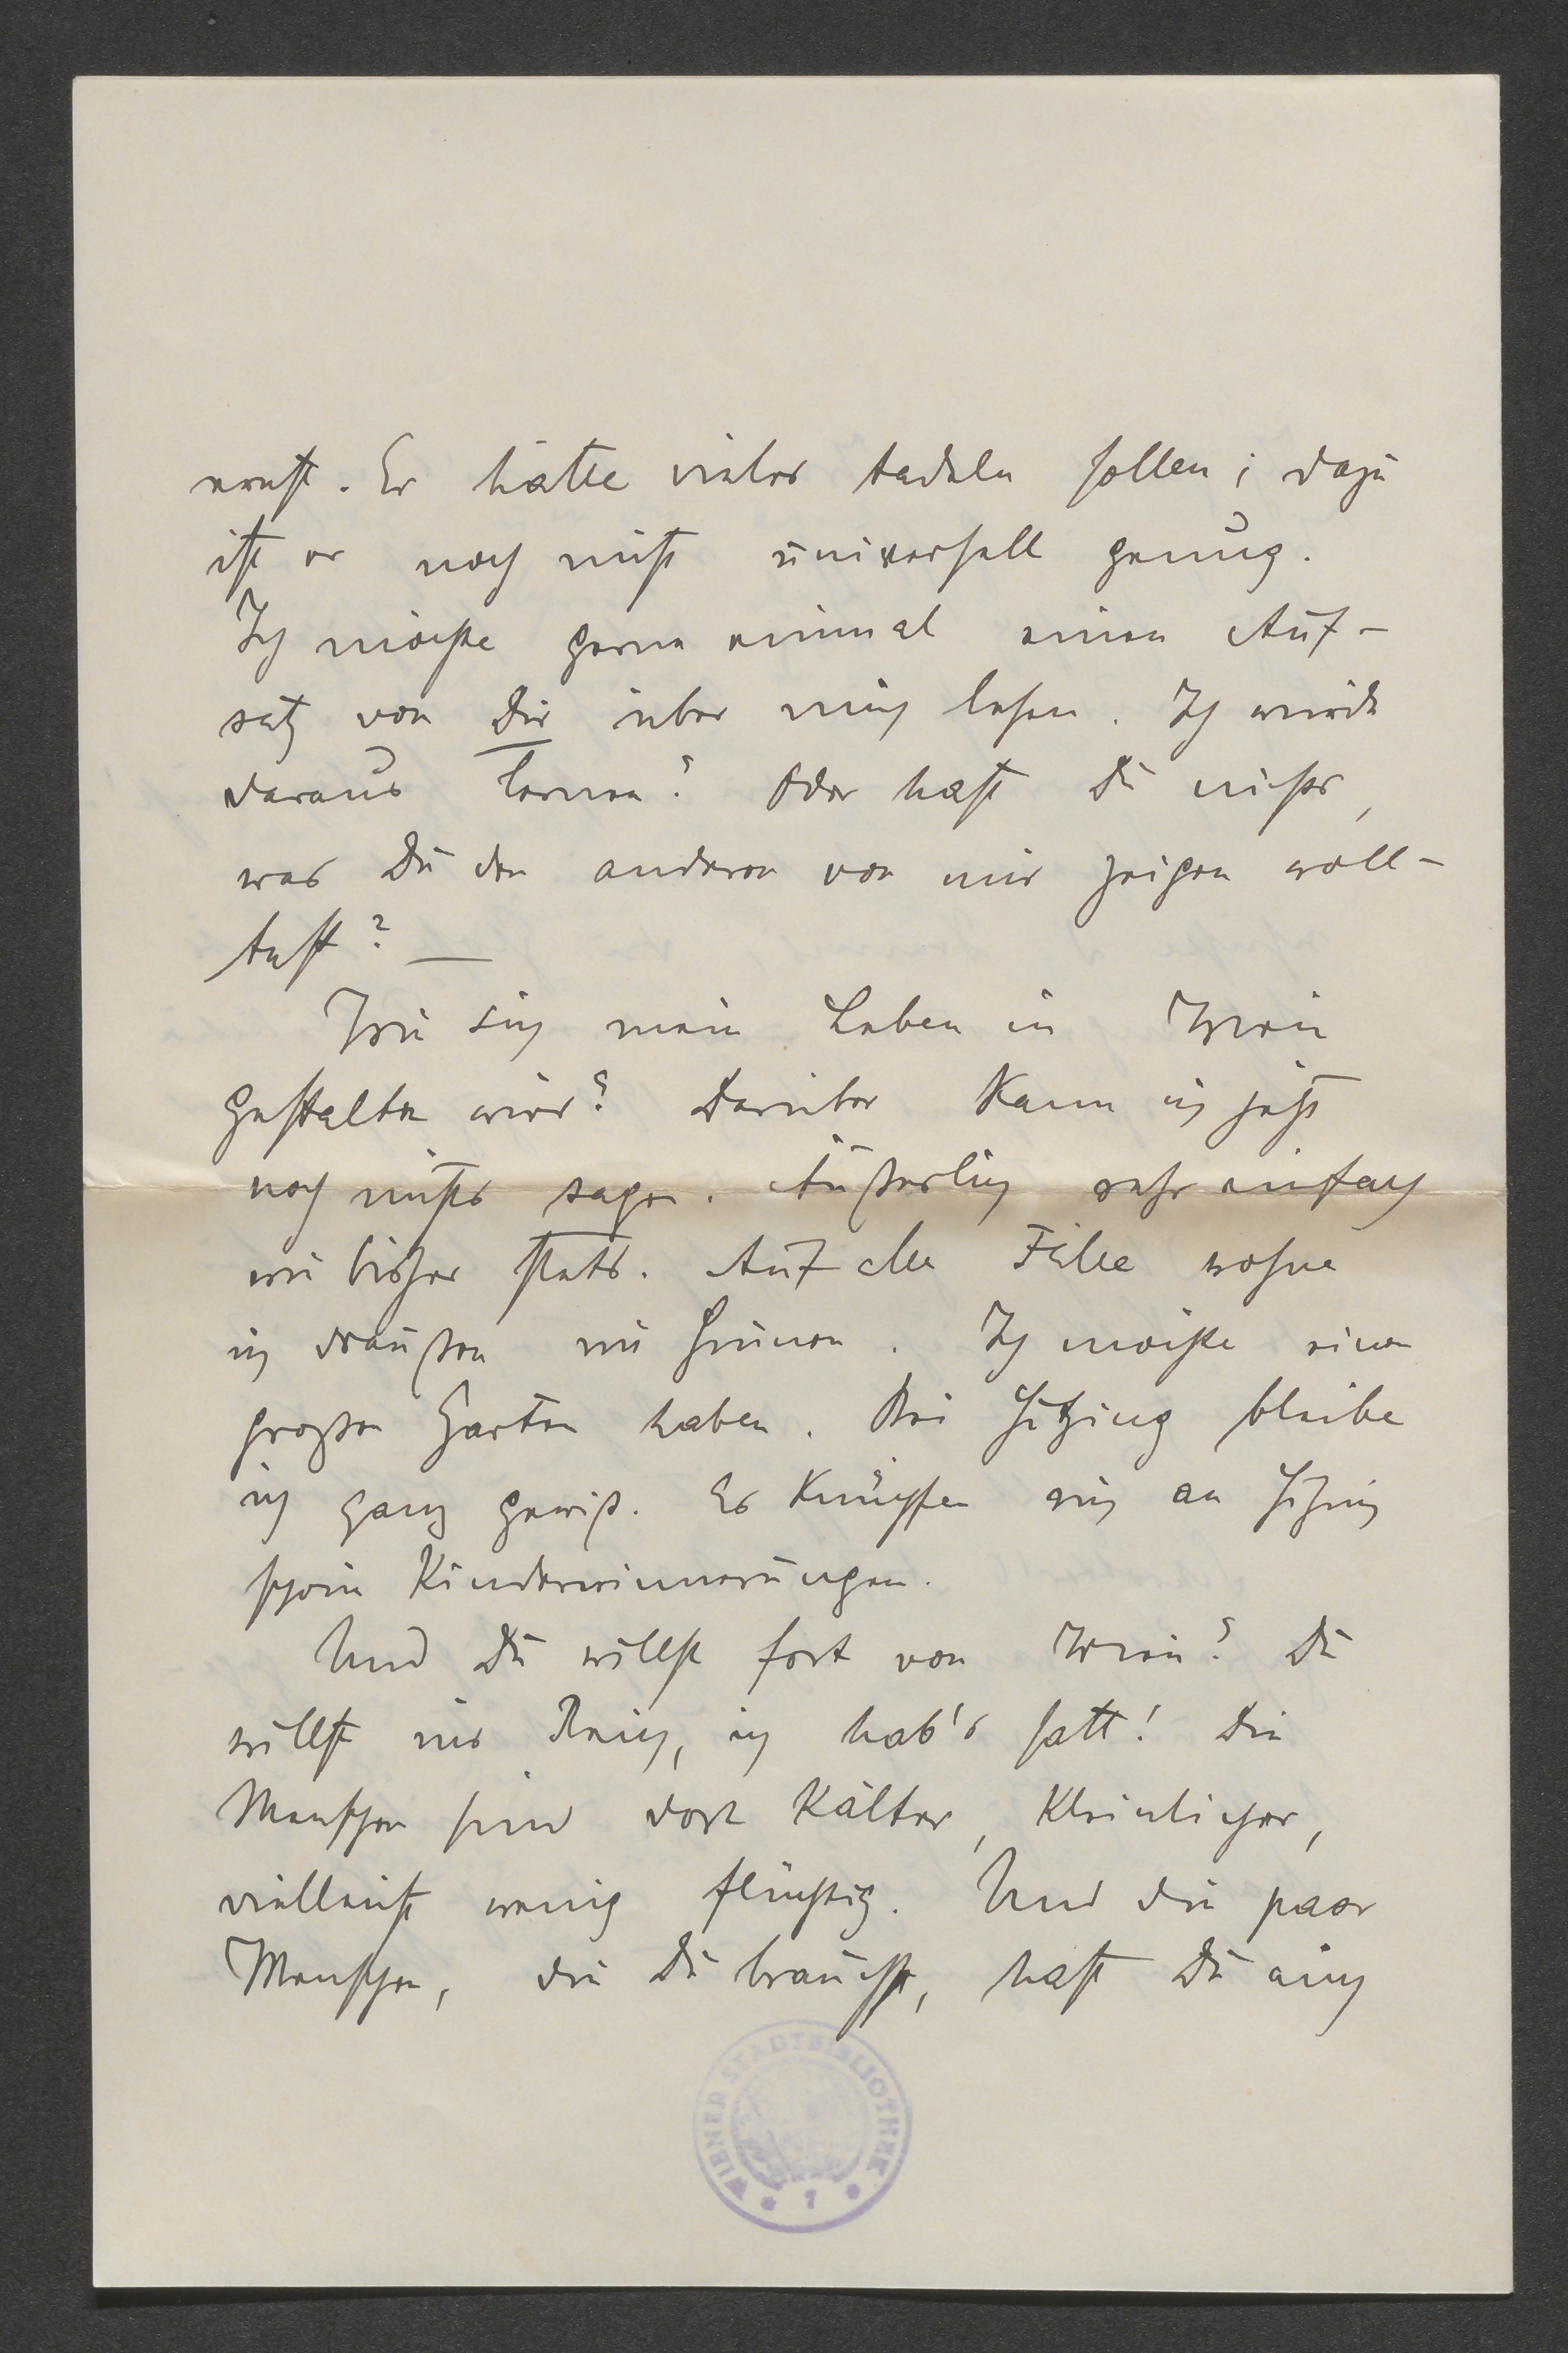 ernst. Er hätte vieles tadeln sollen; dazu
ist er noch nicht universell genug.
Ich möchte gerne einmal einen Auf-
satz von Dir über mich lesen. Ich würde
daraus lernen? Oder hast Du nichts,
was Du den anderen von mir zeigen woll-
test? —
Wie sich mein Leben in Wien
gestalten wird? Darüber kann ich jetzt
noch nichts sagen. Äußerlich sehr einfach
wie bisher stets. Auf alle Fälle wohne
ich draußen im Grünen. Ich möchte einen
großen Garten haben. Bei Hitzing bleibe
ich ganz gewiß. Es knüpfen sich an Hitzing
schöne Kindererinnerungen.
Und Du willst fort von Wien? Du
willst ins Reich, ich hab's satt! Die
Menschen sind dort kälter, kleinlicher,
vielleicht wenig flüchtig. Und die paar
Menschen, die Du brauchst, hast Du auch
WIENER STADTBIBLIOTHEK
* 1 *